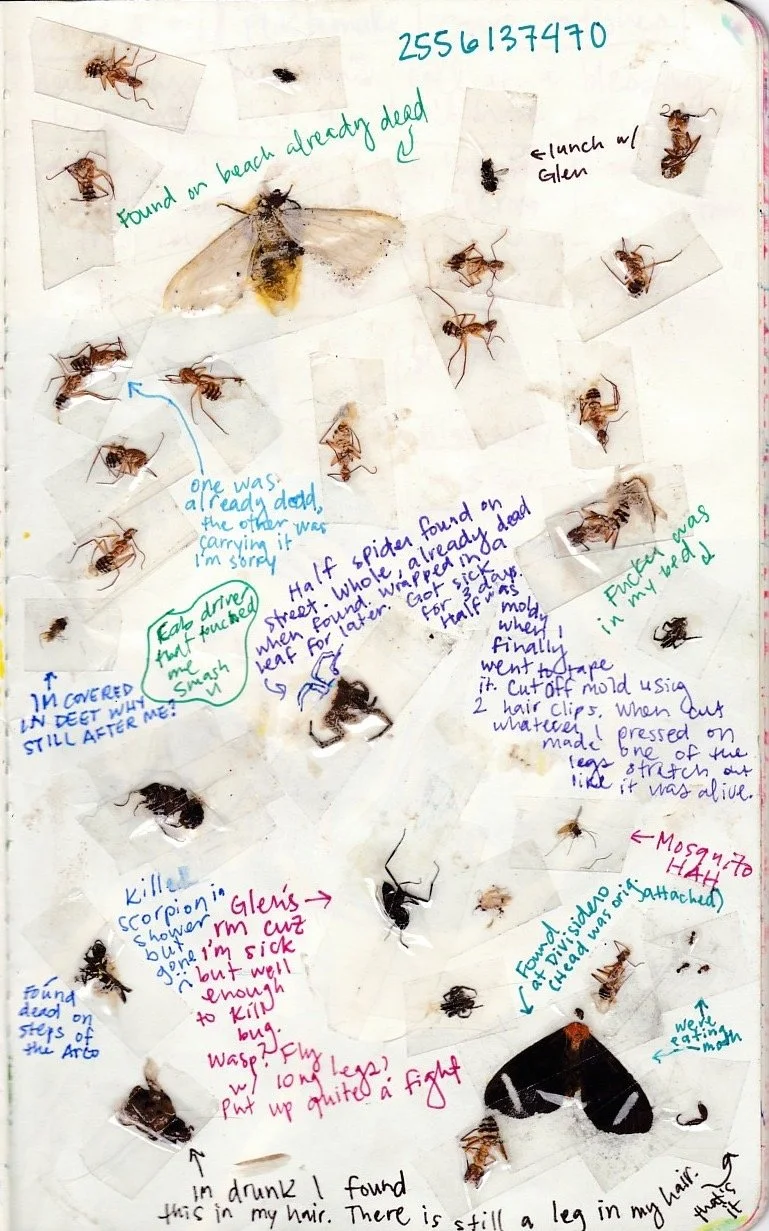 2556137470
Found on beach already dead
←lunch w/
Glen
one was
already dead,
the other was
carrying it
i'm sorry
Half spider found on
street. Whole, already dead
when found. Wrapped in a
leaf for later. Got sick
for 3 days.
Half was
moldy
when I
finally
went to tape
it. Cut off mold using
2 hair clips. When cut
whatever I pressed on
made one of the
legs stretch out
like it was alive.
Fucker was
in my bed
driver
that touched
me
Smash
IM COVERED
IN DEET WHY
STILL AFTER ME?
←Mosquito
HAH
Killed
scorpion in
shower
but
gone
Glen's →
rm cuz
i'm sick
but well
enough
to kill
bug.
Wasp? Fly
w/ long legs?
Put up quite a fight
Found
dead on
steps of
the Arco
Found
at Divisidero
(head was orig. attached)
were
eating
moth
Im drunk I found
this in my hair. There is still a leg in my hair.
that's
it